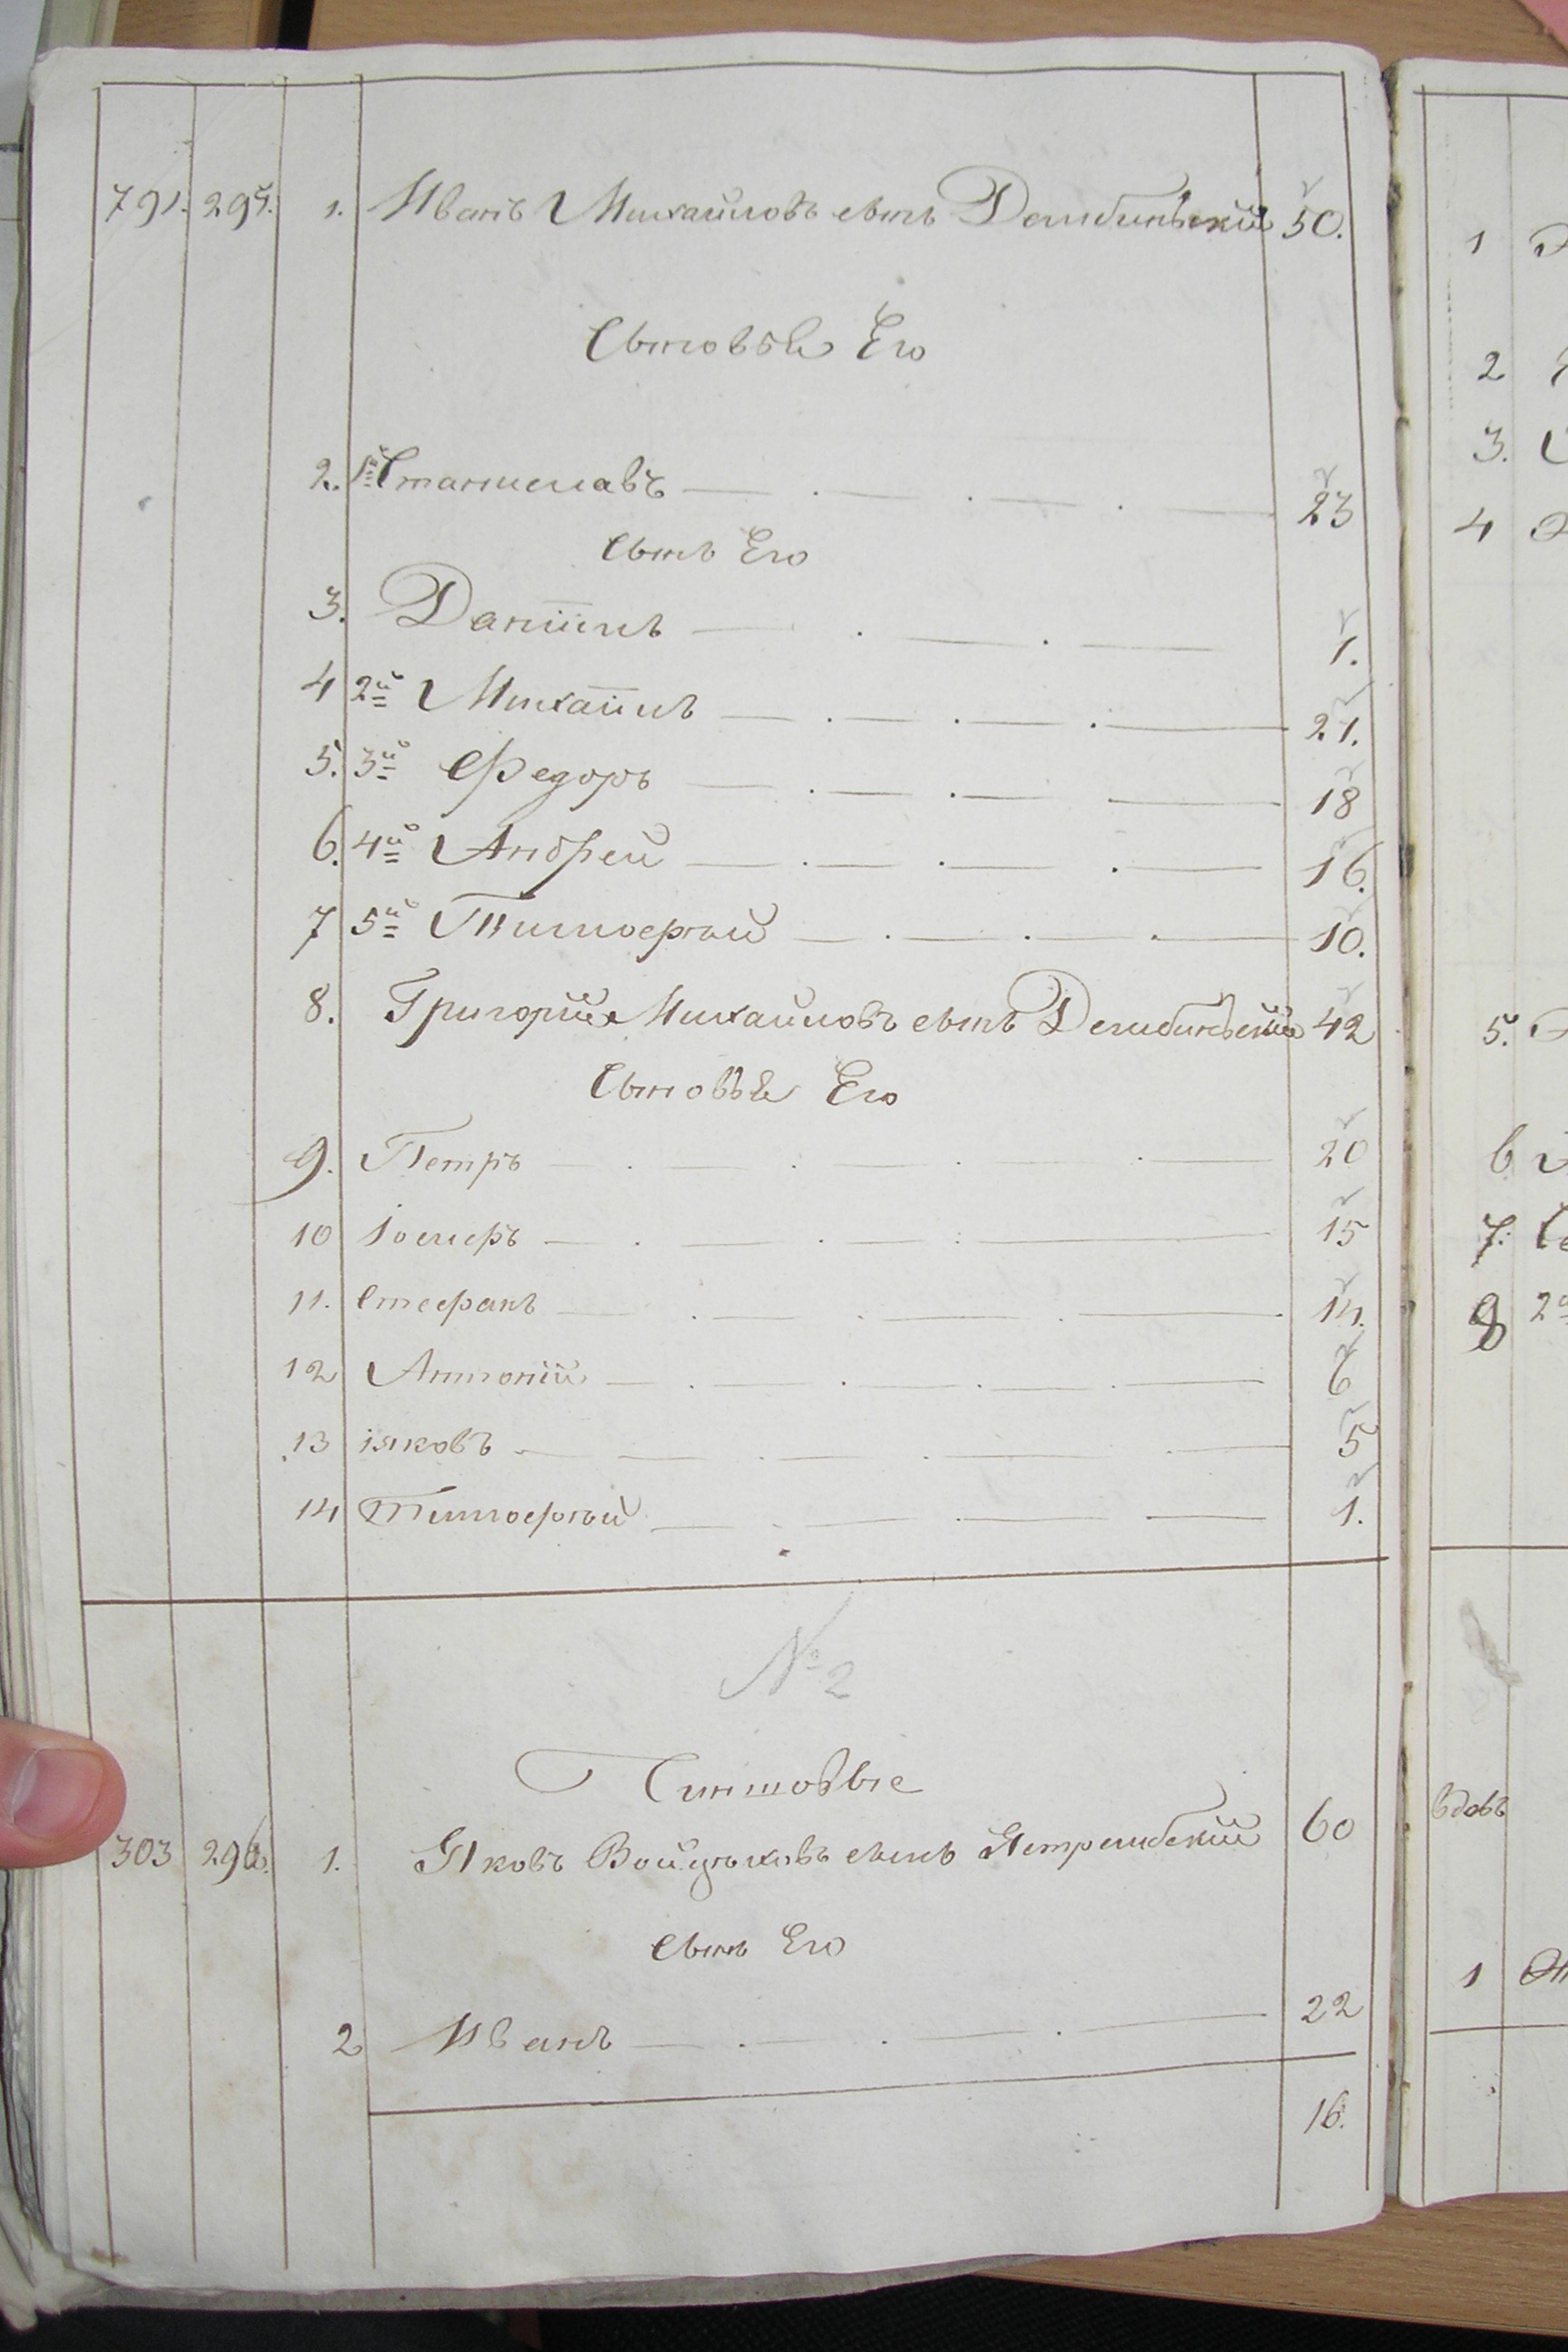 791. 295. 1. Иванъ Михайловъ сынъ Дембиньскій 50.
Сыновья Его
2. 1й Станиславъ 23
Сынъ Его
3. Данiилъ 1.
4 2й Михаiилъ 21.
5. 3й Федоръ 18
6. 4й Андрей 16.
7 5й Тимофѣй 10.
8. Григорій Михайловъ сынъ Дембиньскій 42
Сыновья Его
9. Петръ 20
10 Iосифъ 15
11. Стефанъ 14.
12 Антоній 6
13 іяковъ 5
14 Тимофѣй 1.
№ 2
303 296. 1. Яковъ Войцѣховъ сынъ Ястрембскій 60
Сынъ Его
2 Иванъ 22
16.
1
2
3.
4
5.
6
7.
8 2й
вдовъ
1